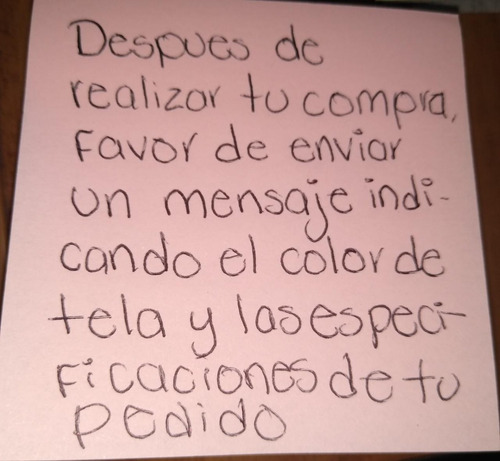 Despues de
realizar tu compra,
Favor de enviar
un mensaje indi-
cando el color de
tela y las especi-
ficaciones de tu
pedido